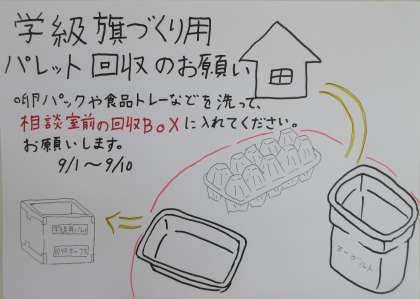 学級旗づくり用
パレット回収のお願い
卵パックや食品トレーなどを洗って、
相談室前の回収BOXに入れてください。
お願いします。
9/1～9/10
ヨーグルト